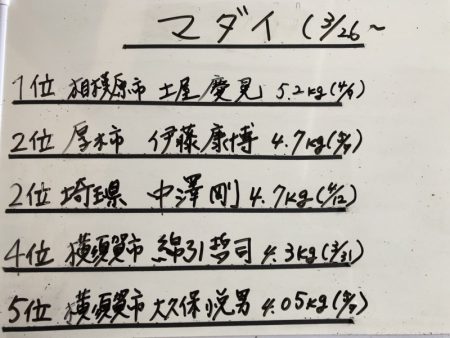 マダイ (3/26~
1位 相模原市 土屋慶見 5.2kg(4/9)
2位 厚木市 伊藤康博 4.7kg
2位 埼玉県 中澤剛 4.7kg(4/12)
4位 横須賀市 綿引哲司 4.3kg(3/31)
5位 横須賀市 大久保悦男 4.05kg